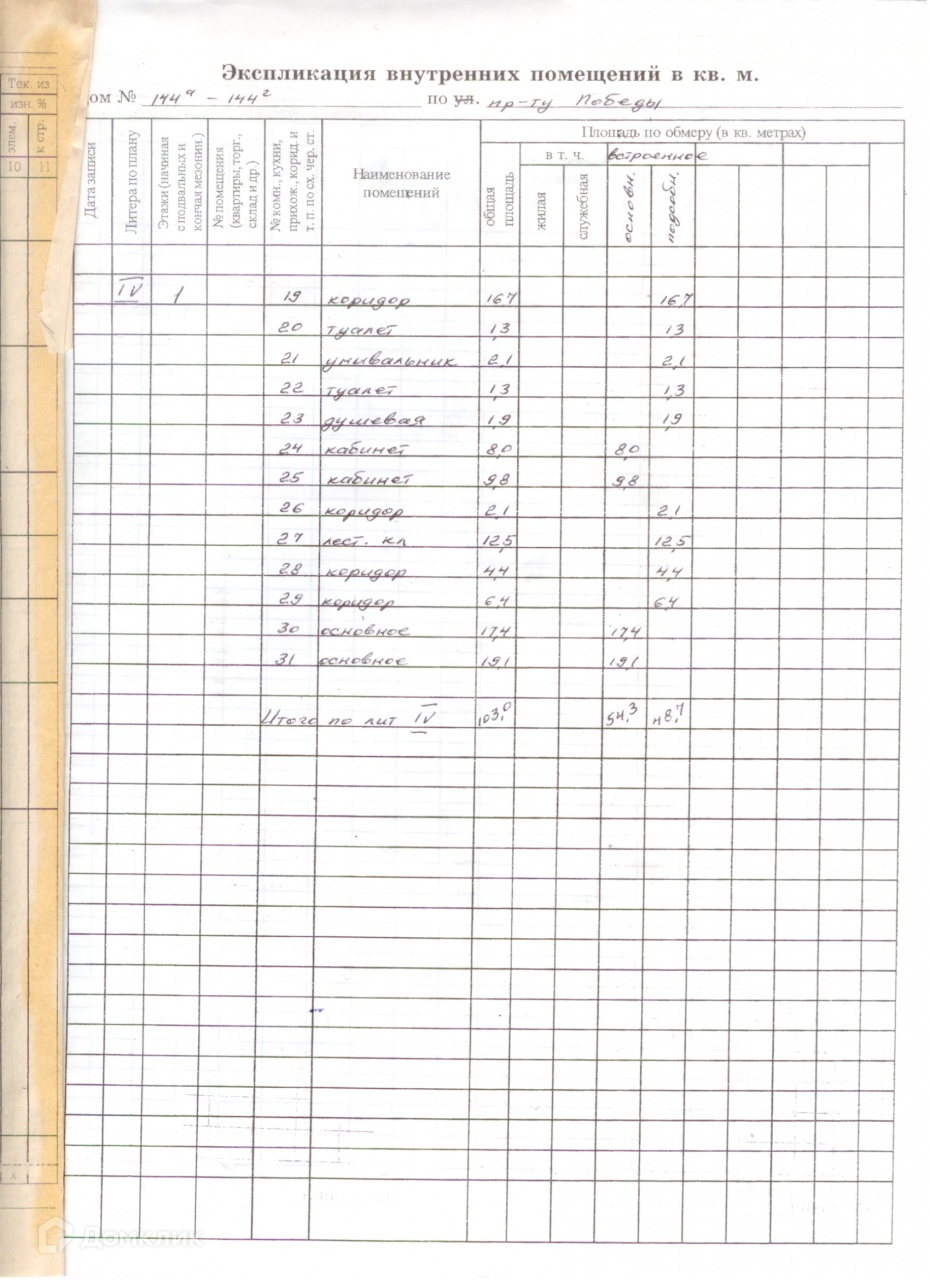 Экспликация внутренних помещений в кв. м.
Тек. из
изм. %
элем.
к стр.
10 11
дом № 144а – 144г по ул. пр-ту Победы
Дата записи
Литера по плану
Этажи (начиная с подвальных и кончая мезонин.)
№ помещения (квартиры, торг., склад и др.)
№ комн., кухни, прихож., корид. и т. п. по сх. чер. ст.
Наименование помещений
Площадь по обмеру (в кв. метрах)
общая площадь
в т. ч. встроенное
жилая
служебная
основн.
подсобн.
IV 1 19 коридор 16,7 16,7
20 туалет 1,3 1,3
21 умывальник 2,1 2,1
22 туалет 1,3 1,3
23 душевая 1,9 1,9
24 кабинет 8,0 8,0
25 кабинет 9,8 9,8
26 коридор 2,1 2,1
27 лест. кл 12,5 12,5
28 коридор 4,4 4,4
29 коридор 6,4 6,4
30 основное 17,4 17,4
31 основное 19,1 19,1
Итого по лит IV 103,0 54,3 48,7
х
Домклик